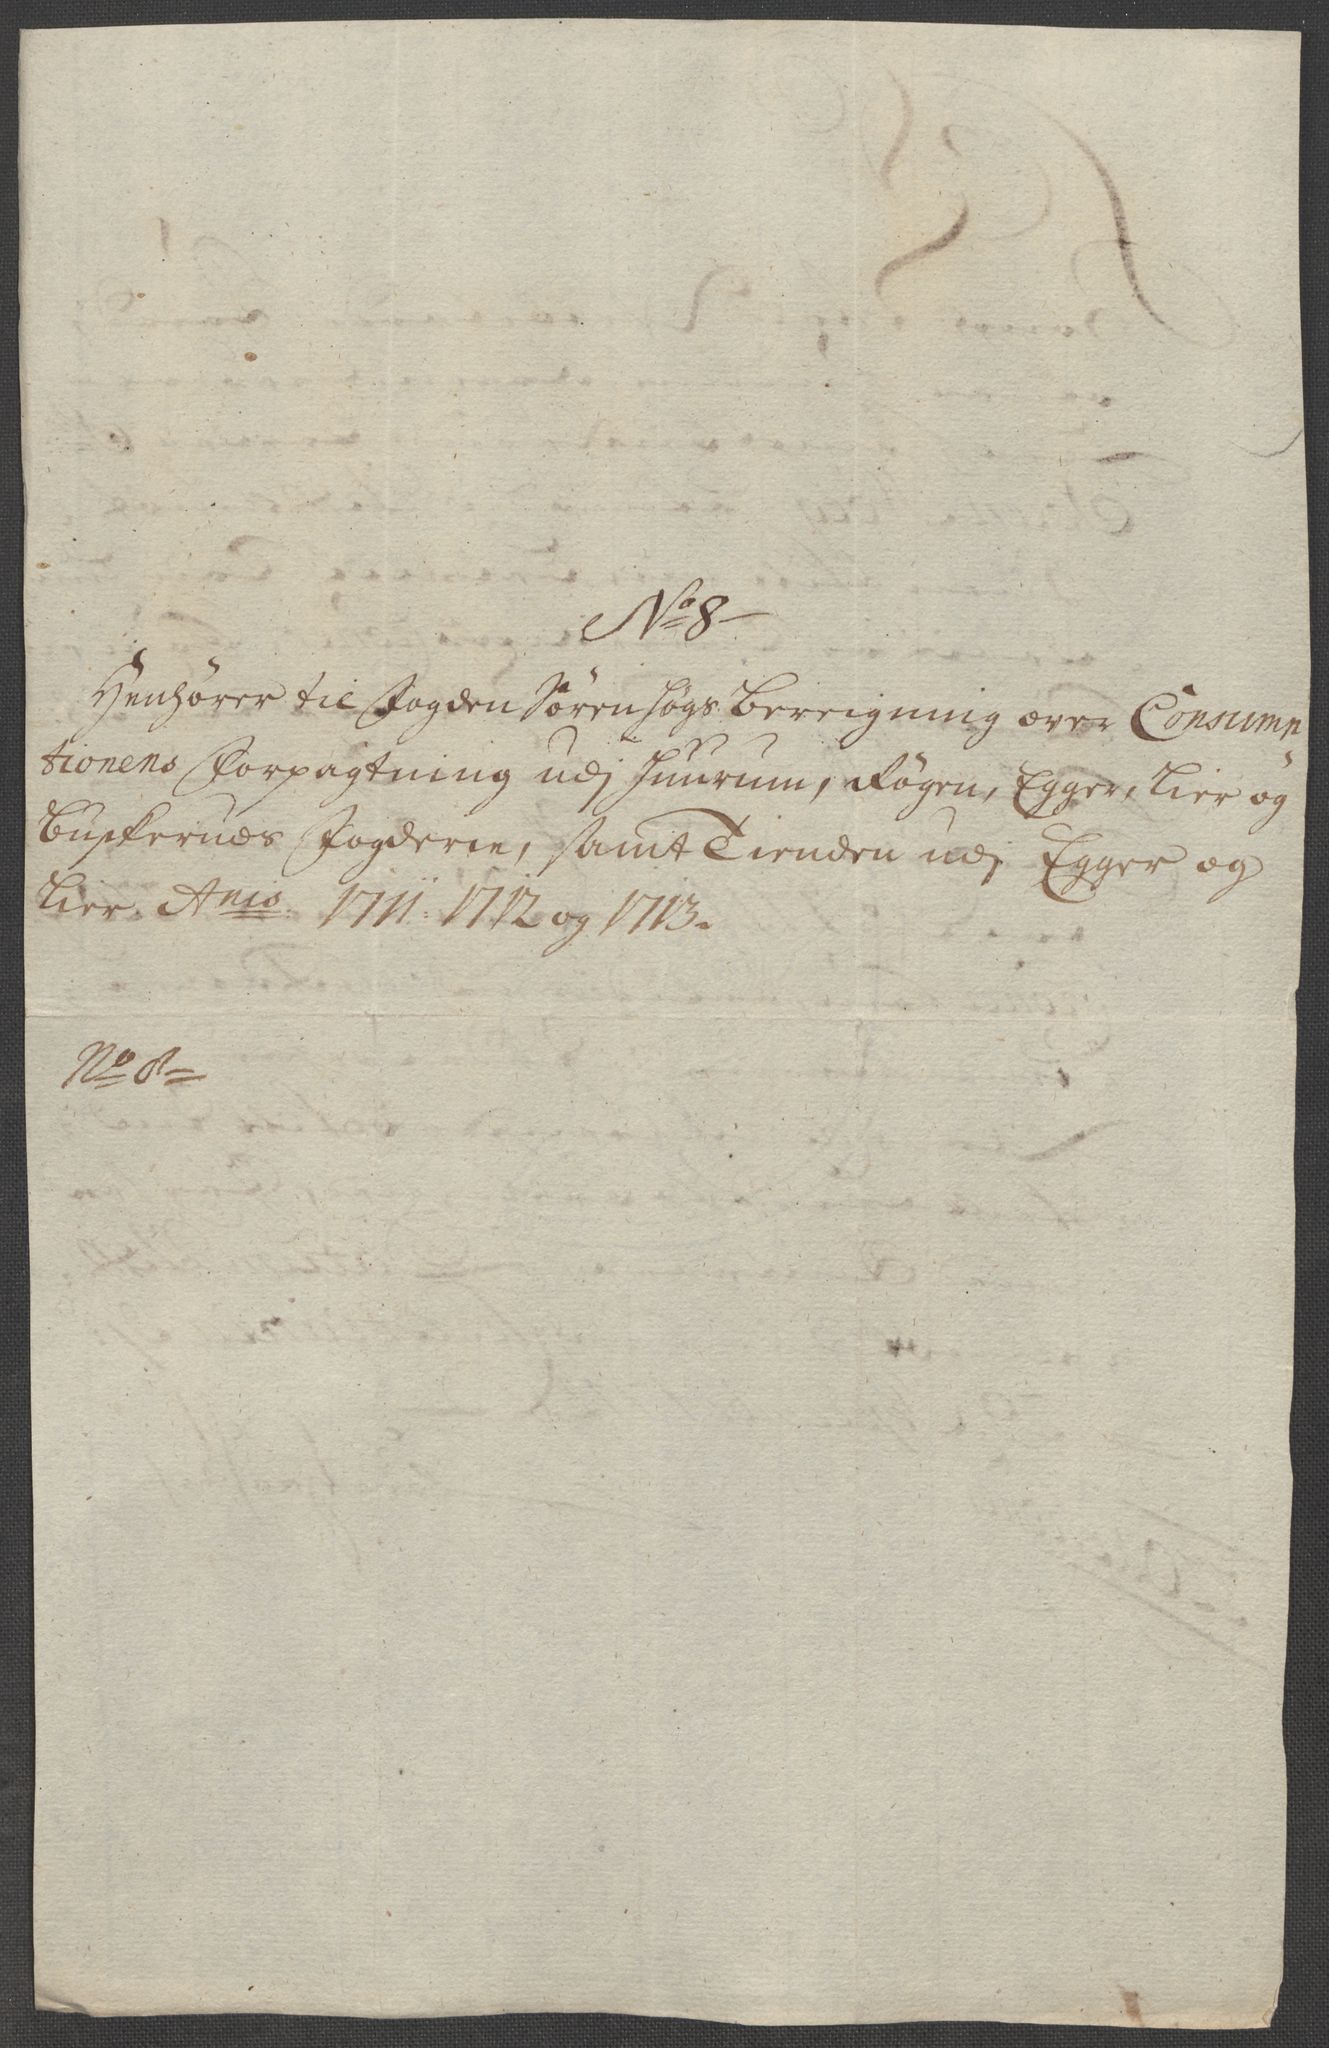 No 8
Henhører til Fogden Søren Høgs bereigning over Consump
tionens Forpagtning udj Huurum, Røgen, Egger, Lier og
Buskeruds Fogderie, samt Tienden udj Egger og
Lier. Anis. 1711: 1712 og 1713.
No 8